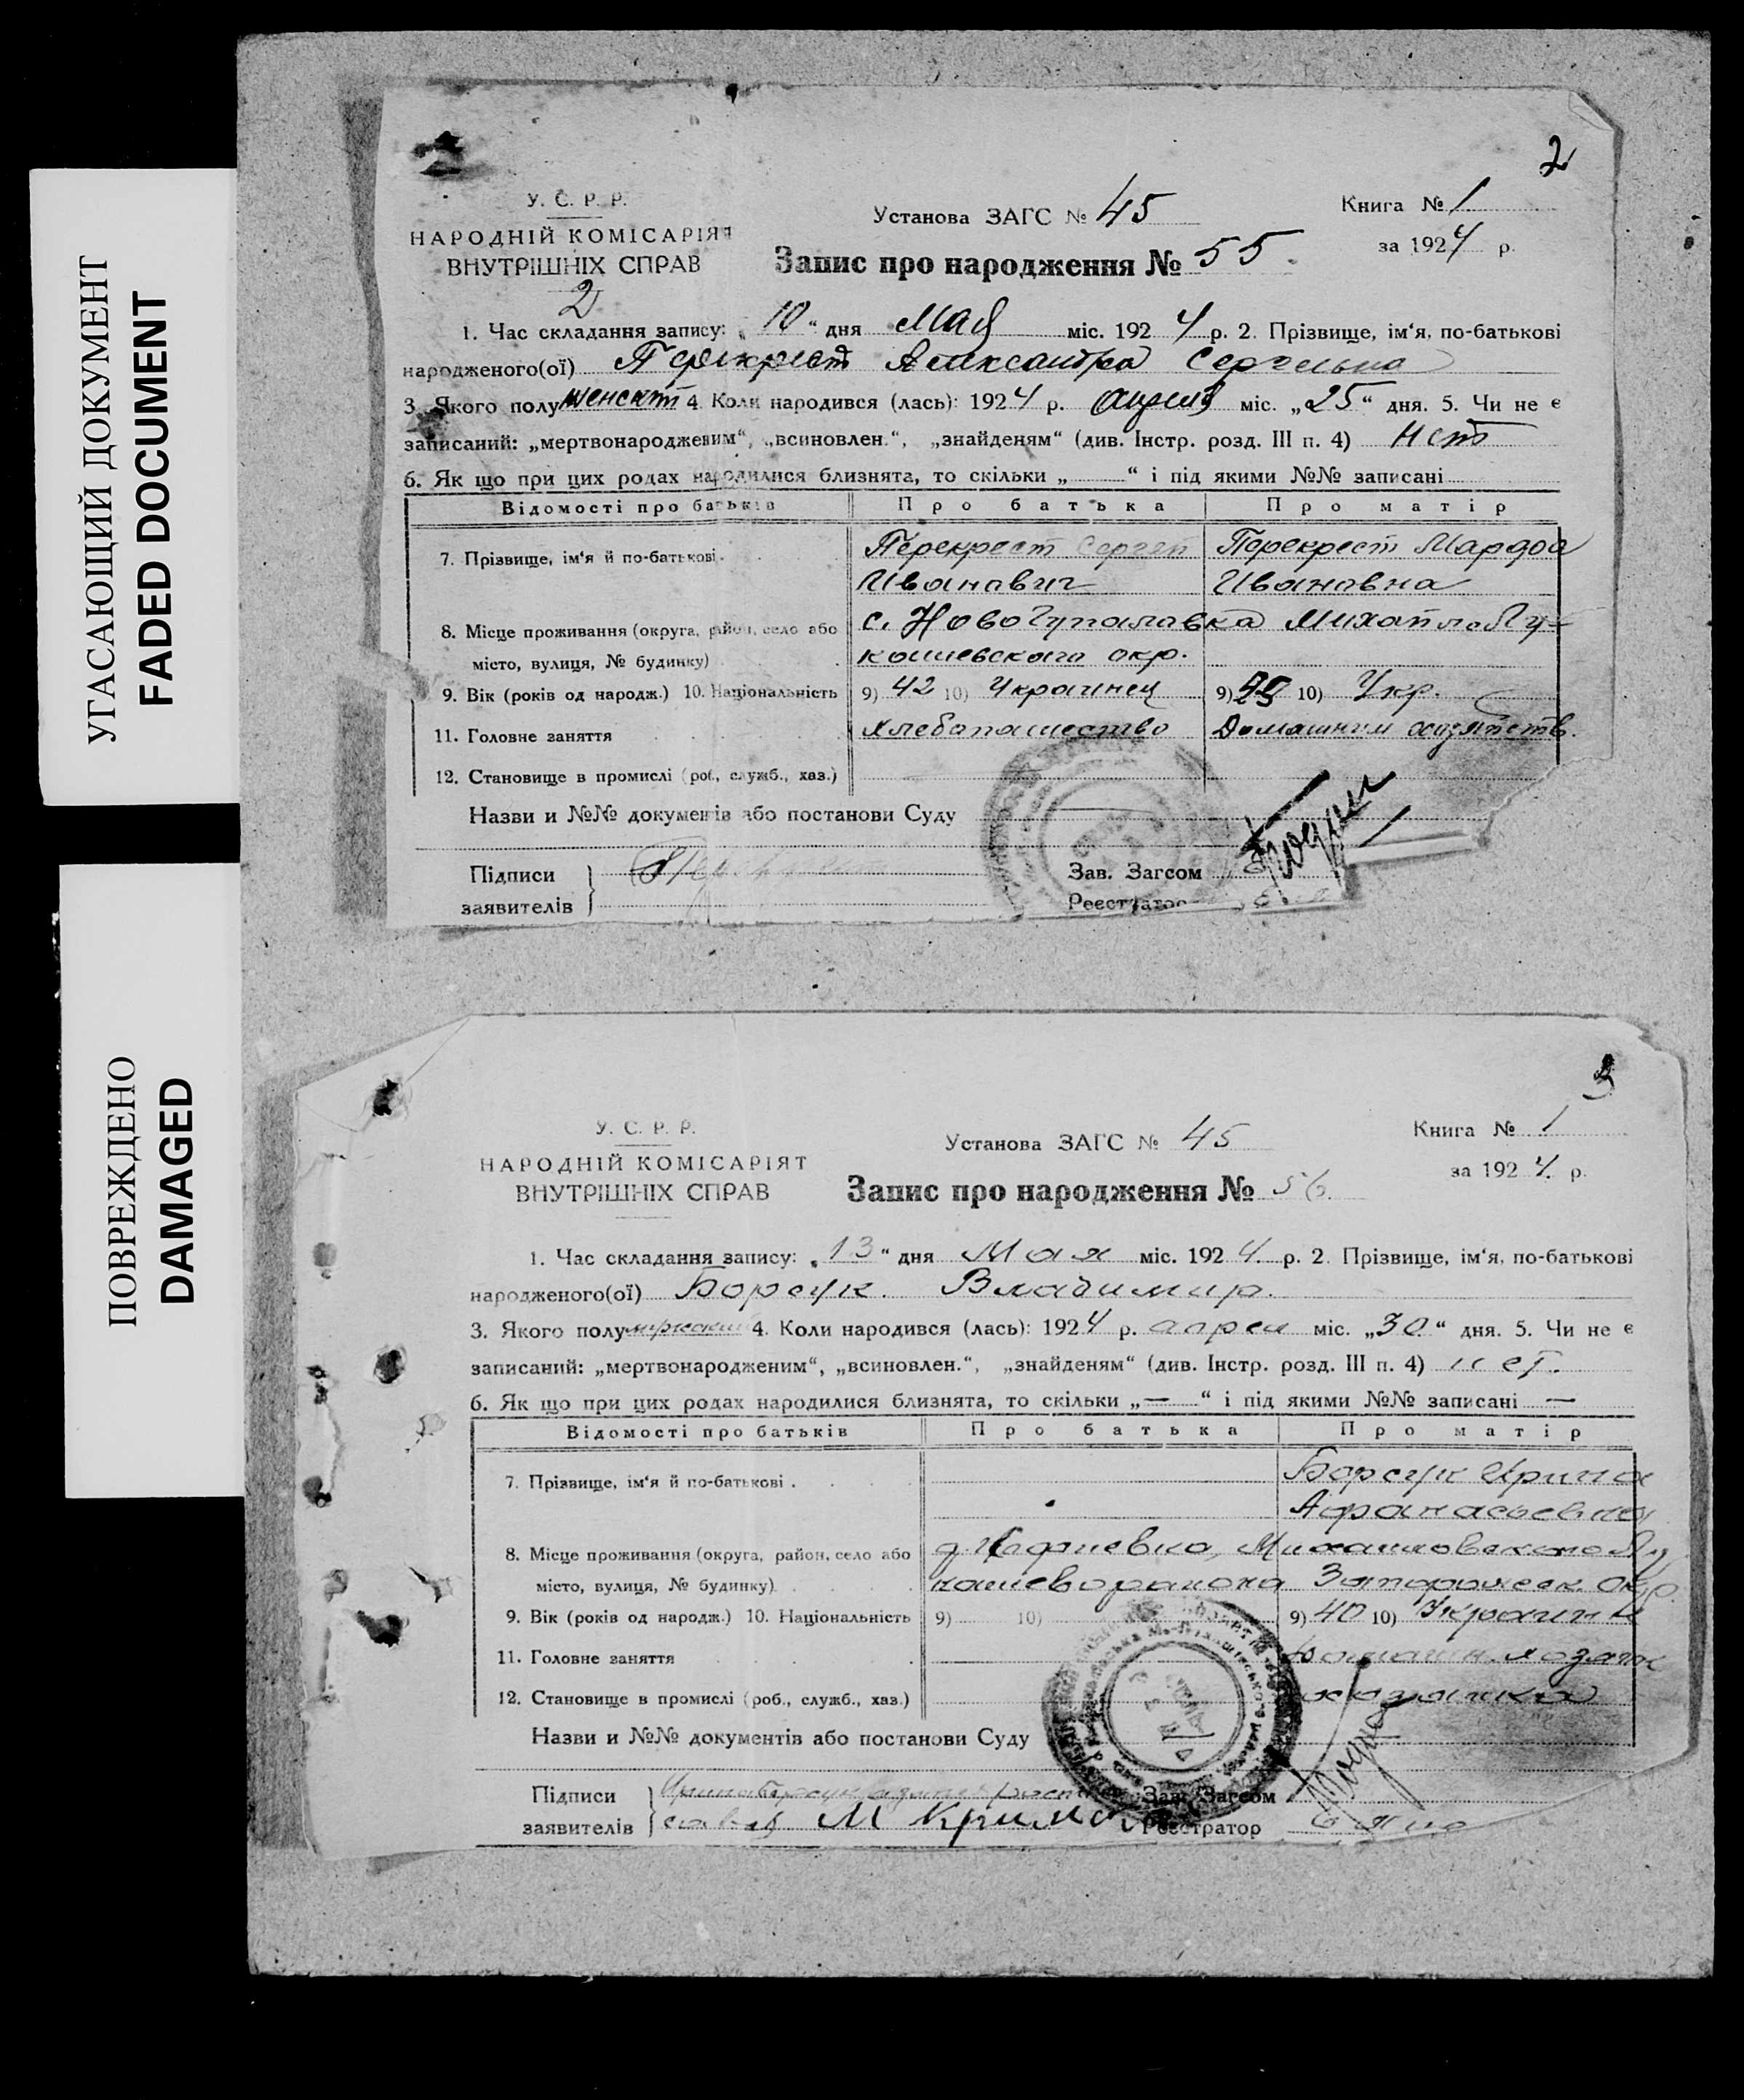 УГАСАЮЩИЙ ДОКУМЕНТ
FADED DOCUMENT
ПОВРЕЖДЕНО
DAMAGED
2
2
У. С. Р. Р.
НАРОДНІЙ КОМІСАРІЯТ
ВНУТРІШНІХ СПРАВ
2
Установа ЗАГС № 45
Запис про народження № 55.
Книга № 1
за 1924 р.
1. Час складання запису: „10“ дня Мая міс. 1924 р. 2. Прізвище, ім‘я, по-батькові
народженого(ої) Перекрест Александра Сергеевна
3. Якого полу женскт 4. Коли народився (лась): 1924 р. апреля міс. „25“ дня. 5. Чи не є
записаний: „мертвонародженим“, „всиновлен.“, „знайденям“ (див. Інстр. розд. III п. 4) Нет
6. Як що при цих родах народилися близнята, то скільки „ “ і під якими №№ записані
Відомості про батьків Про батька Про матір
7. Прізвище, ім‘я й по-батькові Перекрест Сергей Перекрест
Иванавич Иванавна
8. Місце проживання (округа, район, село або с. Ново Гупалавка Михайло Лу-
місто, вулиця, № будинку) кашевскага окр.
9. Вік (років од народж.) 10. Національність 9) 42 10) Украинец 9) 10) Укр.
11. Головне заняття Хлебапашество Домашним
12. Становище в промислі (роб., служб., хаз.)
Назви и №№ документів або постанови Суду
Підписи
заявителів
Зав. Загсом
Реєстратор
3
У. С. Р. Р.
НАРОДНІЙ КОМІСАРІЯТ
ВНУТРІШНІХ СПРАВ
Установа ЗАГС № 45
Запис про народження № 56.
Книга № 1
за 1924 р.
1. Час складання запису: „13“ дня Мая міс. 1924 р. 2. Прізвище, ім‘я, по-батькові
народженого(ої) Борсук. Владимир.
3. Якого полу 4. Коли народився (лась): 1924 р. апрел міс. „30“ дня. 5. Чи не є
записаний: „мертвонародженим“, „всиновлен.“, „знайденям“ (див. Інстр. розд. III п. 4) нет.
6. Як що при цих родах народилися близнята, то скільки „—“ і під якими №№ записані —
Відомості про батьків Про батька Про матір
7. Прізвище, ім‘я й по-батькові . Борсук Ирина
Афанасьевна
8. Місце проживання (округа, район, село або Михайловского Лу
місто, вулиця, № будинку) кашево района Запорожск. окр.
9. Вік (років од народж.) 10. Національність 9) 10) 9) 40 10)
11. Головне заняття
12. Становище в промислі (роб., служб., хаз.) хозяйка
Назви и №№ документів або постанови Суду
Підписи
заявителів М
Зав. Загсом
Реєстратор